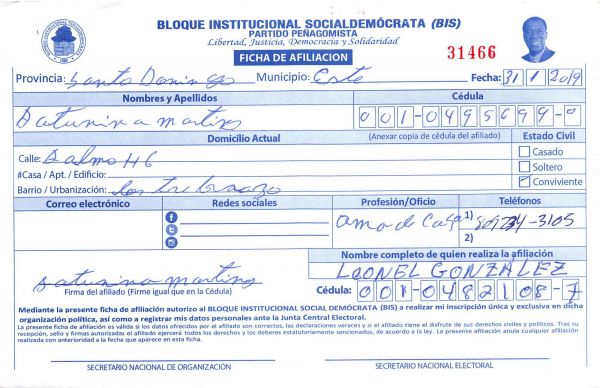 BLOQUE INSTITUCIONAL SOCIALDEMÓCRATA (BIS)
PARTIDO PEÑAGOMISTA
Libertad, Justicia, Democracia y Solidaridad
FICHA DE AFILIACION
31466
Provincia: Santo Domingo Municipio: Este Fecha: 31/1/2019
Nombres y Apellidos Cédula
Saturnina Martinez 001-0495699-0
Domicilio Actual (Anexar copia de cédula del afiliado) Estado Civil
Calle: Salmo 46 Casado
#Casa / Apt. / Edificio: Soltero
Barrio / Urbanización: los tres brazo Conviviente
Correo electrónico Redes sociales Profesión/Oficio Teléfonos
ama de Casa 1) -3105
2)
Nombre completo de quien realiza la afiliación
LEONEL GONZALEZ
Saturnina Martinez
Firma del afiliado (Firme igual que en la Cédula) Cédula: 001-0482108-7
Mediante la presente ficha de afiliación autorizo al BLOQUE INSTITUCIONAL SOCIAL DEMÓCRATA (BIS) a realizar mi inscripción única y exclusiva en dicha
organización política, así como a registrar mis datos personales ante la Junta Central Electoral.
La presente ficha de afiliación es válida si los datos ofrecidos por el afiliado son correctos, las declaraciones veraces y si el afiliado tiene el disfrute de sus derechos civiles y políticos. Tras su
recepción, sello y firmas autorizadas el afiliado ejercerá todos los derechos y los deberes estatutariamente sancionados, de acuerdo a la ley. La presente afiliación anula cualquier afiliación
realizada con anterioridad a la fecha que aparece en esta ficha.
SECRETARIO NACIONAL DE ORGANIZACIÓN SECRETARIO NACIONAL ELECTORAL